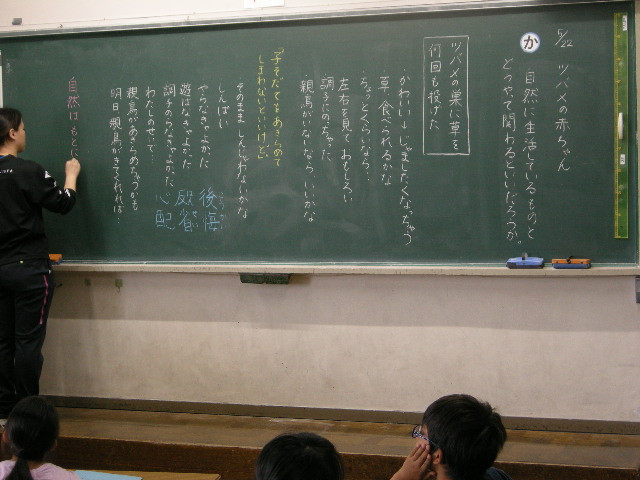 5/22 ツバメの赤ちゃん
か 自然に生活しているものと
どうやって関わるといいだろうか。
ツバメの巣に草を
何回も投げた
・かわいい→じゃましたくなっちゃう
・草、食べられるかな
・ちょっとくらいなら
・左右を見ておもしろい
・調子にのっちゃた
・親鳥がいないなら、いいかな
「子そだてをあきらめて
しまわないといいけど」
・そのまましんじゃわないかな
しんぱい
やらなきゃよかった
遊ばなきゃよかった
調子のらなきゃよかった
わたしのせいで…
親鳥があきらめちゃうのも
明日親鳥がきてくれれば…
後悔
反省
心配
自然はもとに